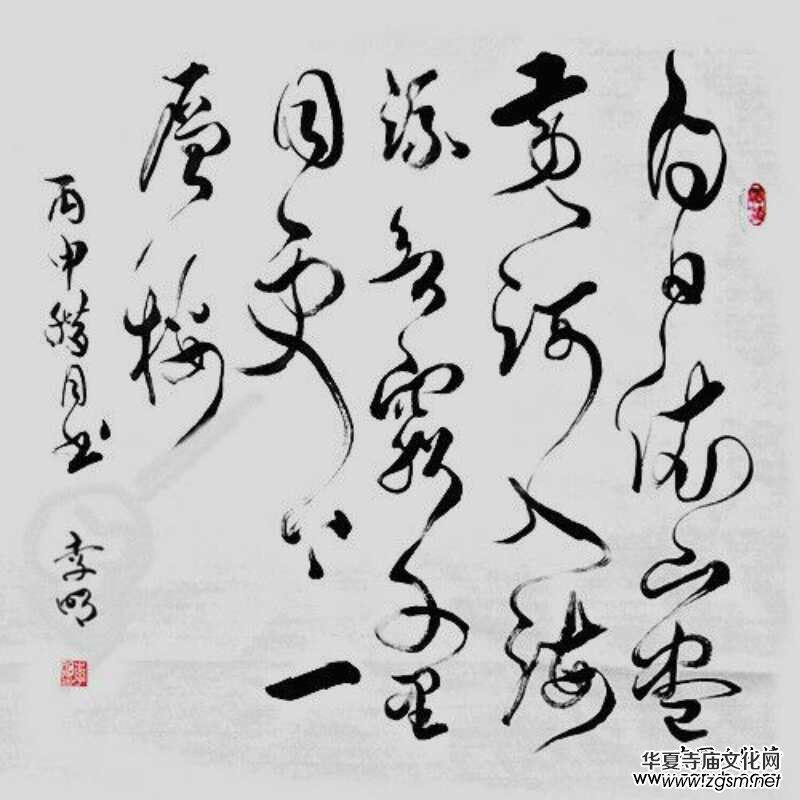 白日依山盡
黄河入海
流欲窮千里
目更上一
層樓
丙申腊月书 李明
华夏寺庙文化网
www.zgsm.net